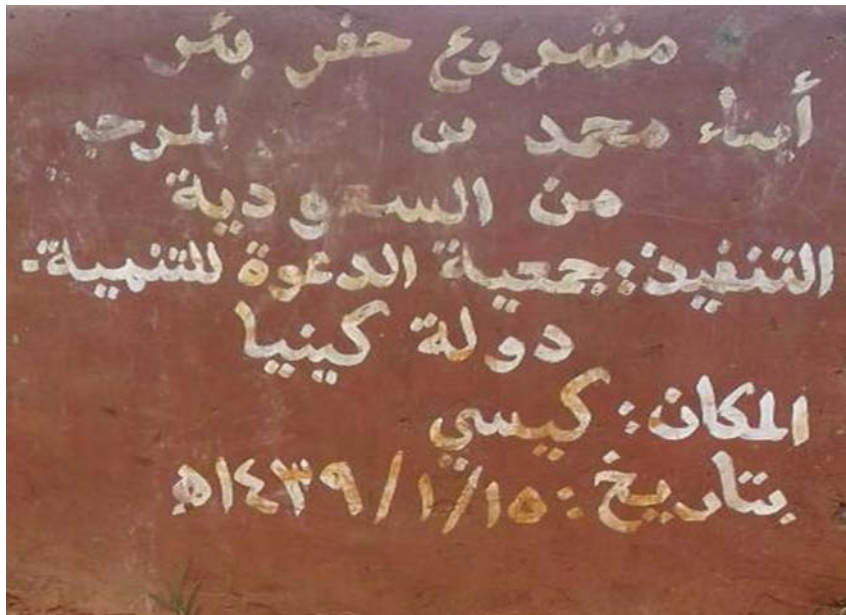 مشروع حفر بئر
أبناء محمد بن
من السعودية
التنفيذ: جمعية الدعوة للتنمية.
دولة كينيا
المكان: كيسي
بتاريخ: ١٤٣٩/١/١٥ه